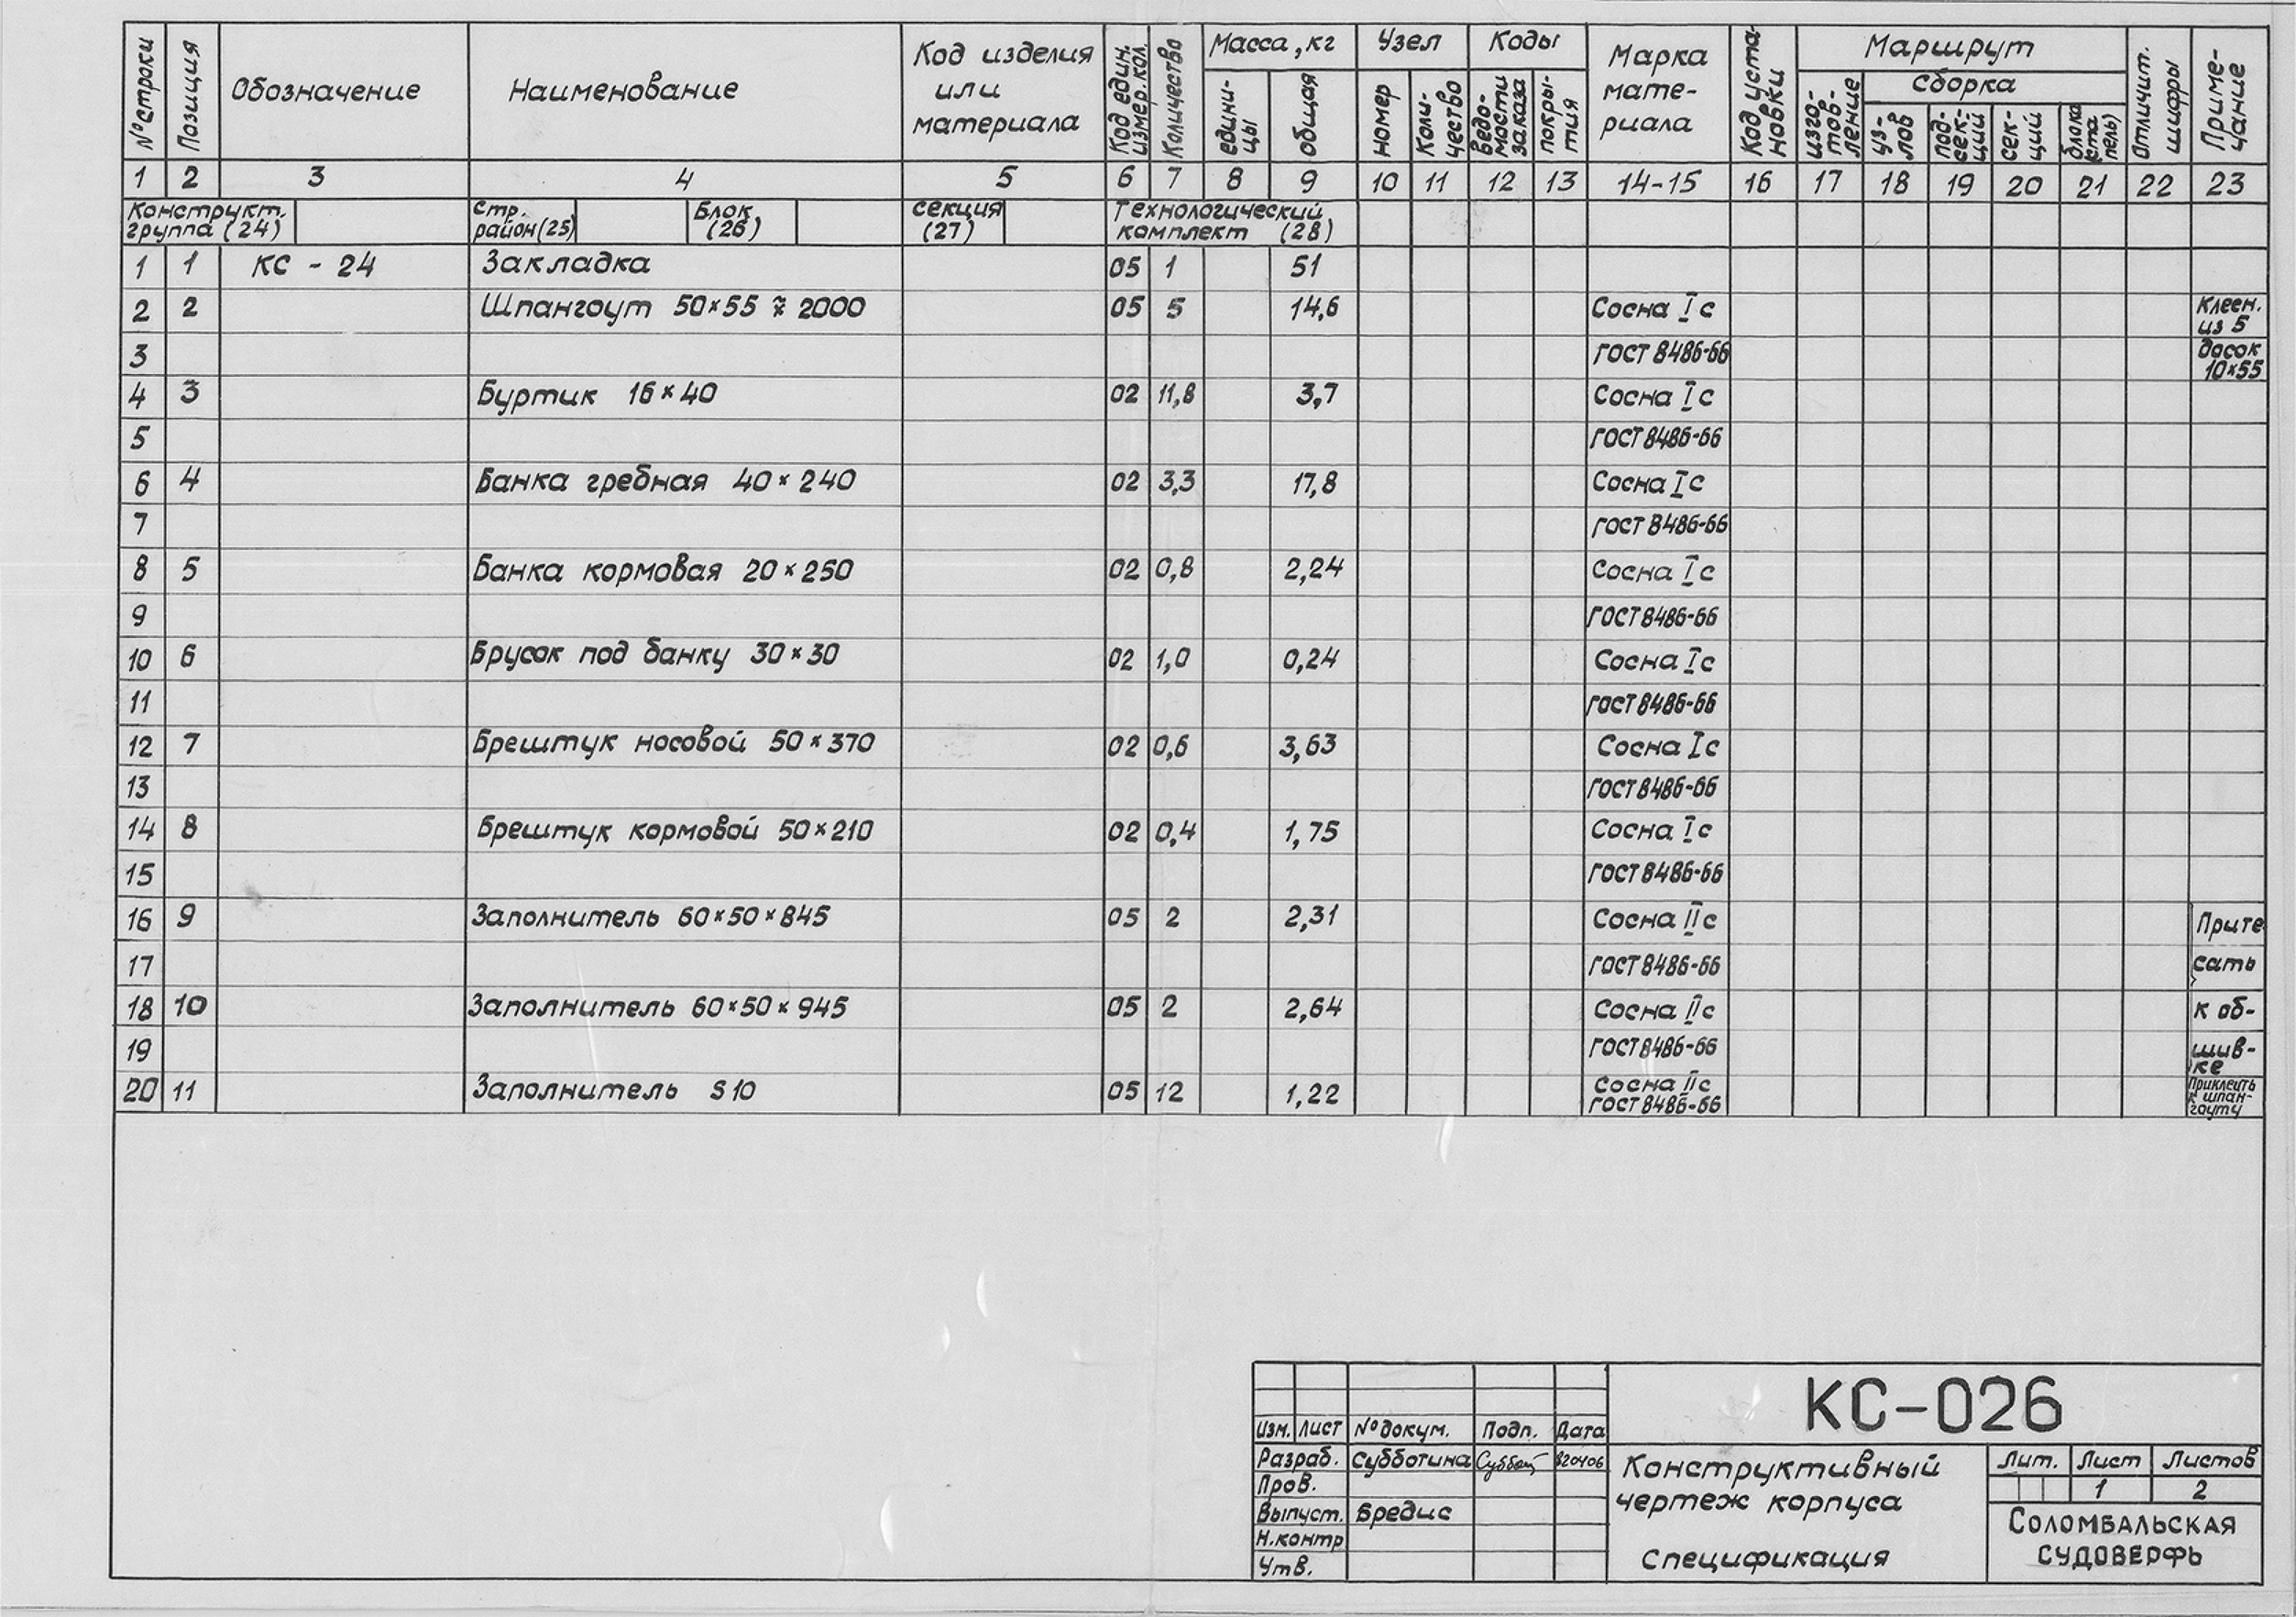 № строки Позиция Обозначение Наименование Код изделия или материала Код един. измер. кол. Количество Масса, кг едини-цы общая Узел номер Коли-чество Коды ведо-мости заказа покры-тия Марка мате-риала Код уста-новки Маршрут изго-тов-ление Сборка уз-лов под-сек-ций сек-ций блока (ста пель) Отличит. шифры Приме-чание
1 2 3 4 5 6 7 8 9 10 11 12 13 14-15 16 17 18 19 20 21 22 23
Конструкт. группа (24) Стр. район (25) Блок (26) секция (27) Технологический комплект (28)
1 1 КС - 24 Закладка 05 1 51
2 2 Шпангоут 50×55 2000 05 5 14,6 Сосна Iс Клеен. из 5
3 ГОСТ 8486-66 досок 10×55
4 3 Буртик 16×40 02 11,8 3,7 Сосна Iс
5 ГОСТ 8486-66
6 4 Банка гребная 40×240 02 3,3 17,8 Сосна Iс
7 ГОСТ 8486-66
8 5 Банка кормовая 20×250 02 0,8 2,24 Сосна Iс
9 ГОСТ 8486-66
10 6 Брусок под банку 30×30 02 1,0 0,24 Сосна Iс
11 ГОСТ 8486-66
12 7 Брештук носовой 50×370 02 0,6 3,63 Сосна Iс
13 ГОСТ 8486-66
14 8 Брештук кормовой 50×210 02 0,4 1,75 Сосна Iс
15 ГОСТ 8486-66
16 9 Заполнитель 60×50×845 05 2 2,31 Сосна IIс Прите
17 ГОСТ 8486-66 сать
18 10 Заполнитель 60×50×945 05 2 2,64 Сосна IIс к об-
19 ГОСТ 8486-66 шив-ке
20 11 Заполнитель S10 05 12 1,22 Сосна IIс ГОСТ 8486-66 Приклеить к шпан-гоуту
КС-026
Изм. Лист № докум. Подп. Дата
Разраб. Субботина 820406
Пров.
Выпуст. Бредис
Н.контр
Утв.
Конструктивный
чертеж корпуса
Спецификация
Лит. Лист Листов
1 2
Соломбальская
судоверфь